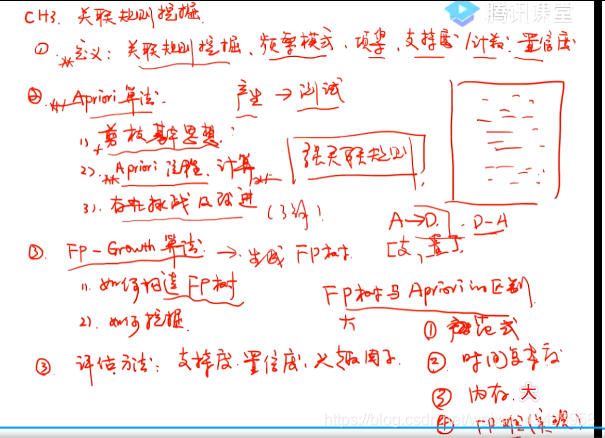 腾讯课堂
CH3. 关联规则挖掘.
①. ** 定义: 关联规则挖掘、频繁模式、项集、支持度/计数、置信度
② ** Apriori 算法. 产生 → 测试
1) 剪枝基本思想:
2). ** Apriori 流程. 计算 **
强关联规则
3). 存在挑战及改进 (3锊).
A→D. D-A
[支, 置]
③. FP-Growth 算法. → 生成 FP树.
1). 如何构造 FP树
2). 如何挖掘.
FP树与Apriori的区别.
大
① 范式
③ 评估方法: 支持度. 置信度. 兴趣因子.
② 时间复杂度
③ 内存. 大
④ FP
https://blog.csdn.net/